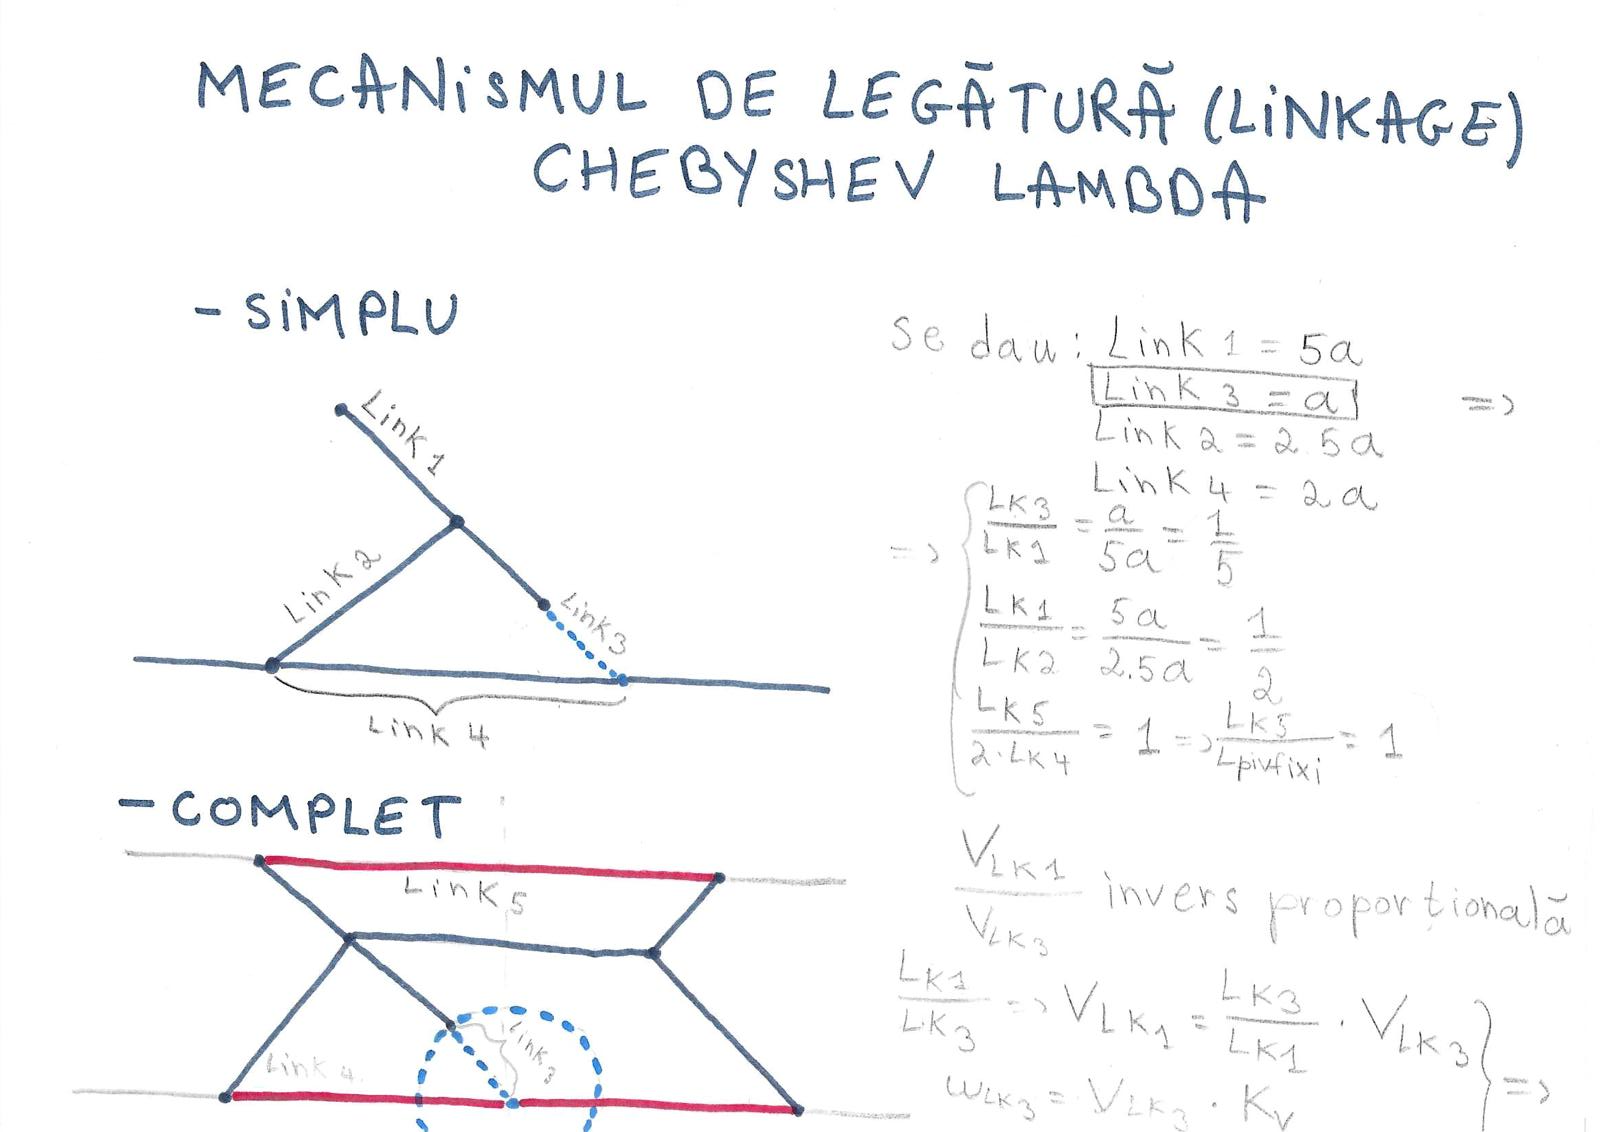 MECANiSMUL DE LEGĂTURĂ (LiNKAGE)
CHEBYSHEV LAMBDA
- SiMPLU
Link 1
Link 2
Link 3
Link 4
Se dau: Link 1 = 5a
Link 3 = a =>
Link 2 = 2.5a
Link 4 = 2a
=> { LK3/LK1 = a/5a = 1/5
LK1/LK2 = 5a/2.5a = 1/2
LK5/2·LK4 = 1 => LK5/Lpivfixi = 1
- COMPLET
Link 5
Link 3
Link 4
VLK1/VLK3 invers proporțională
LK1/LK3 => VLK1 = LK3/LK1 · VLK3 } =>
ωLK3 = VLK3 · Kv